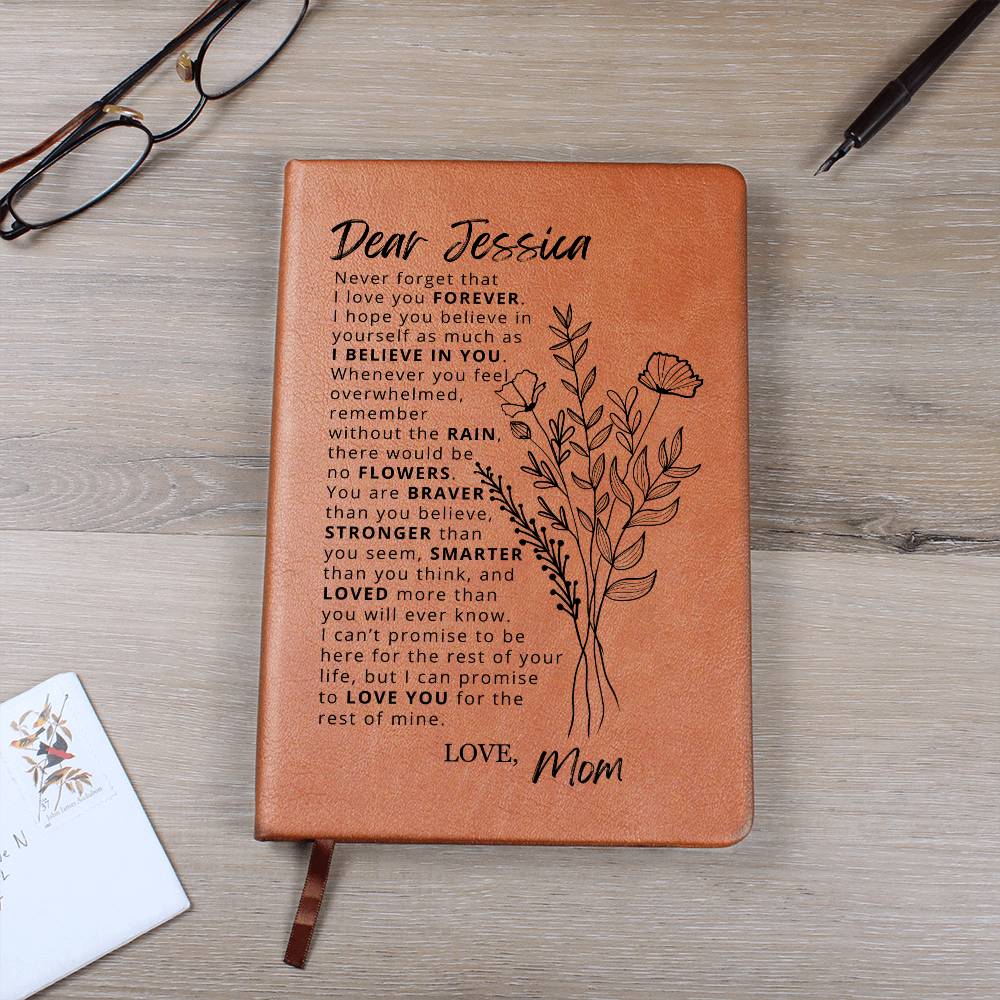 Dear Jessica
Never forget that
I love you FOREVER.
I hope you believe in
yourself as much as
I BELIEVE IN YOU.
Whenever you feel
overwhelmed,
remember
without the RAIN,
there would be
no FLOWERS.
You are BRAVER
than you believe,
STRONGER than
you seem, SMARTER
than you think, and
LOVED more than
you will ever know.
I can't promise to be
here for the rest of your
life, but I can promise
to LOVE YOU for the
rest of mine.
LOVE, Mom
37
John James Audubon
N